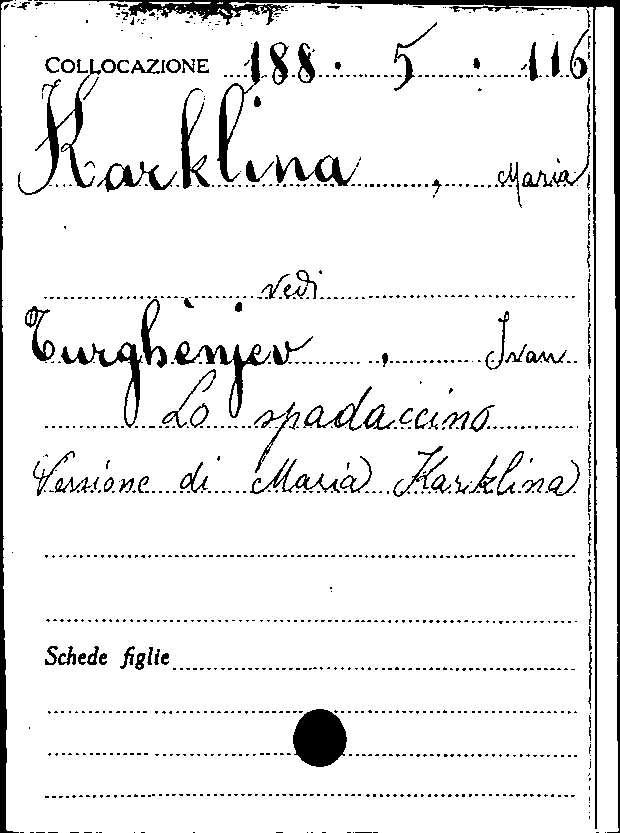 COLLOCAZIONE 188 . 5 . 116
Karklina , Maria
vedi
Turghènjev , Ivan
Lo spadaccino
Versione di Maria Karklina
Schede figlie